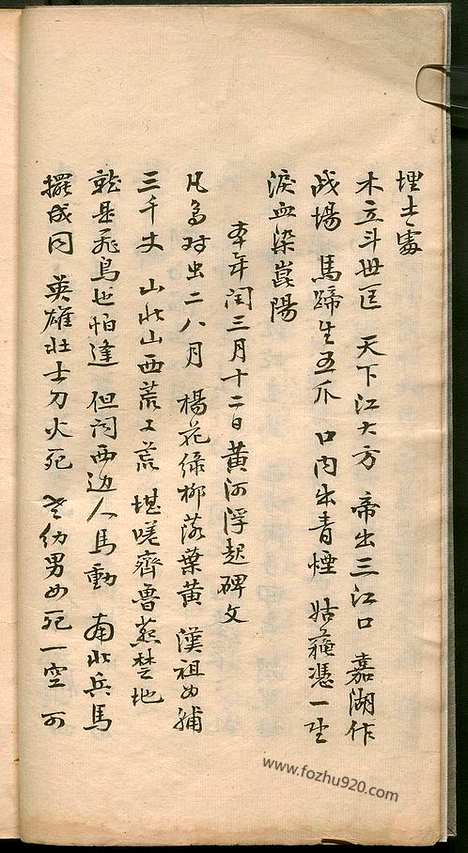 埋土處
木立斗世匡 天下江大方 帝出三江口 嘉湖作
战場 馬蹄生五爪 口内出青煙 姑蘓憑一
淚血染崑陽
本年闰三月十二日黄河浮起碑文
凡鳥对虫二八月 楊花绿柳落葉黄 漢祖
三千丈 山北山西荒又荒 堪嗟齊魯燕楚地
就是飛鳥也怕逢 但闻西边人馬動 南北兵馬
擺成同 英雄壮士刀火死 老幼男女死一空 可
www.fozhu920.com